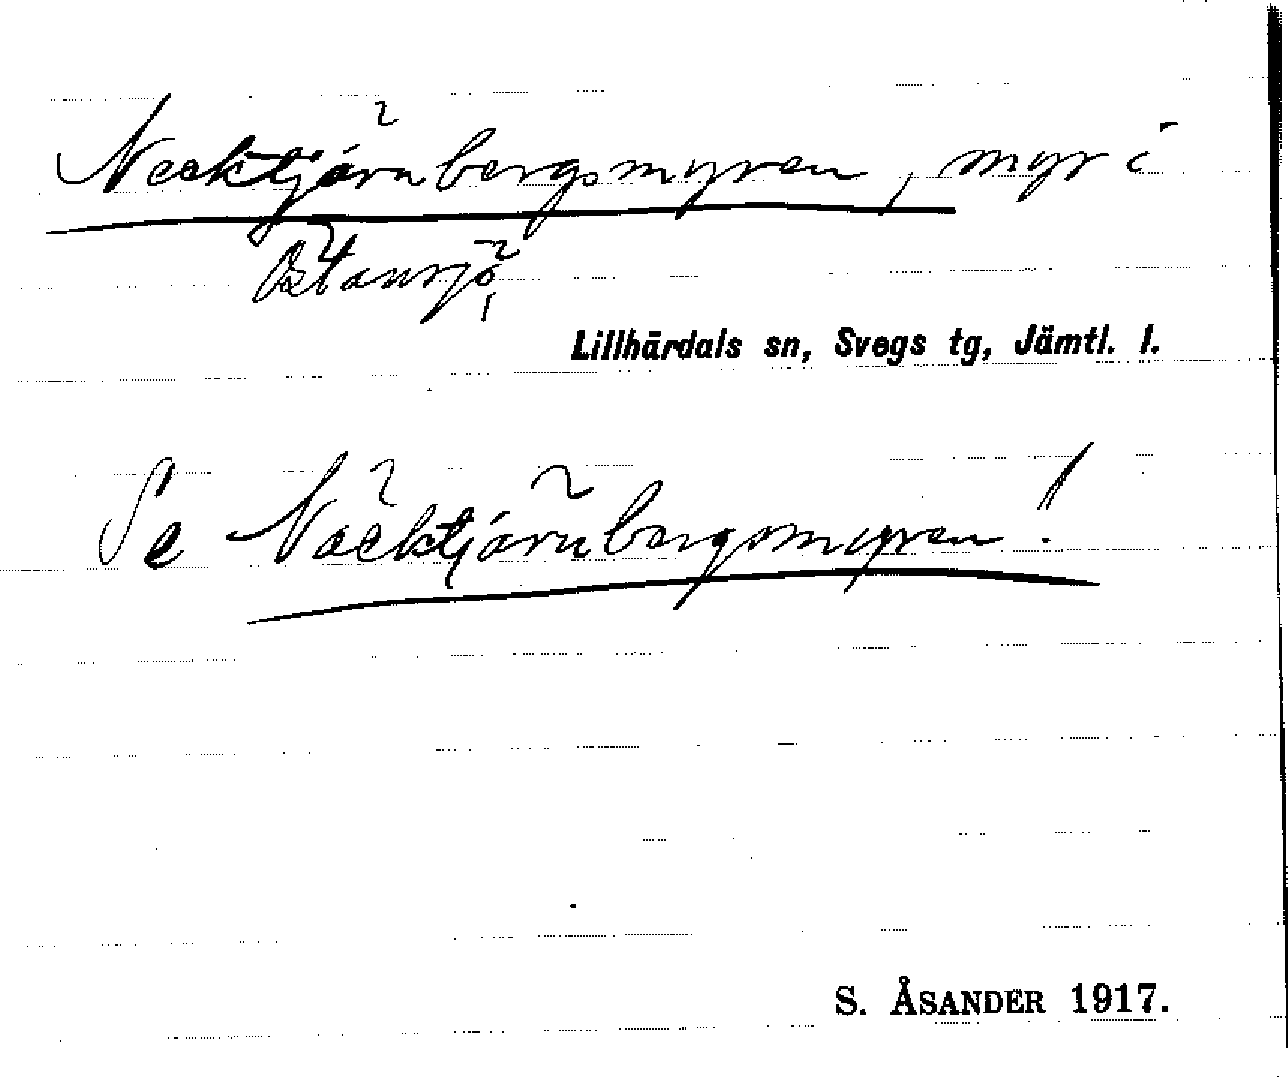 Necktjärnbergsmyren, myr i
Östansjö,
Lillhärdals sn, Svegs tg, Jämtl. l.
Se Näcktjärnbergsmyren!
S. ÅSANDER 1917.